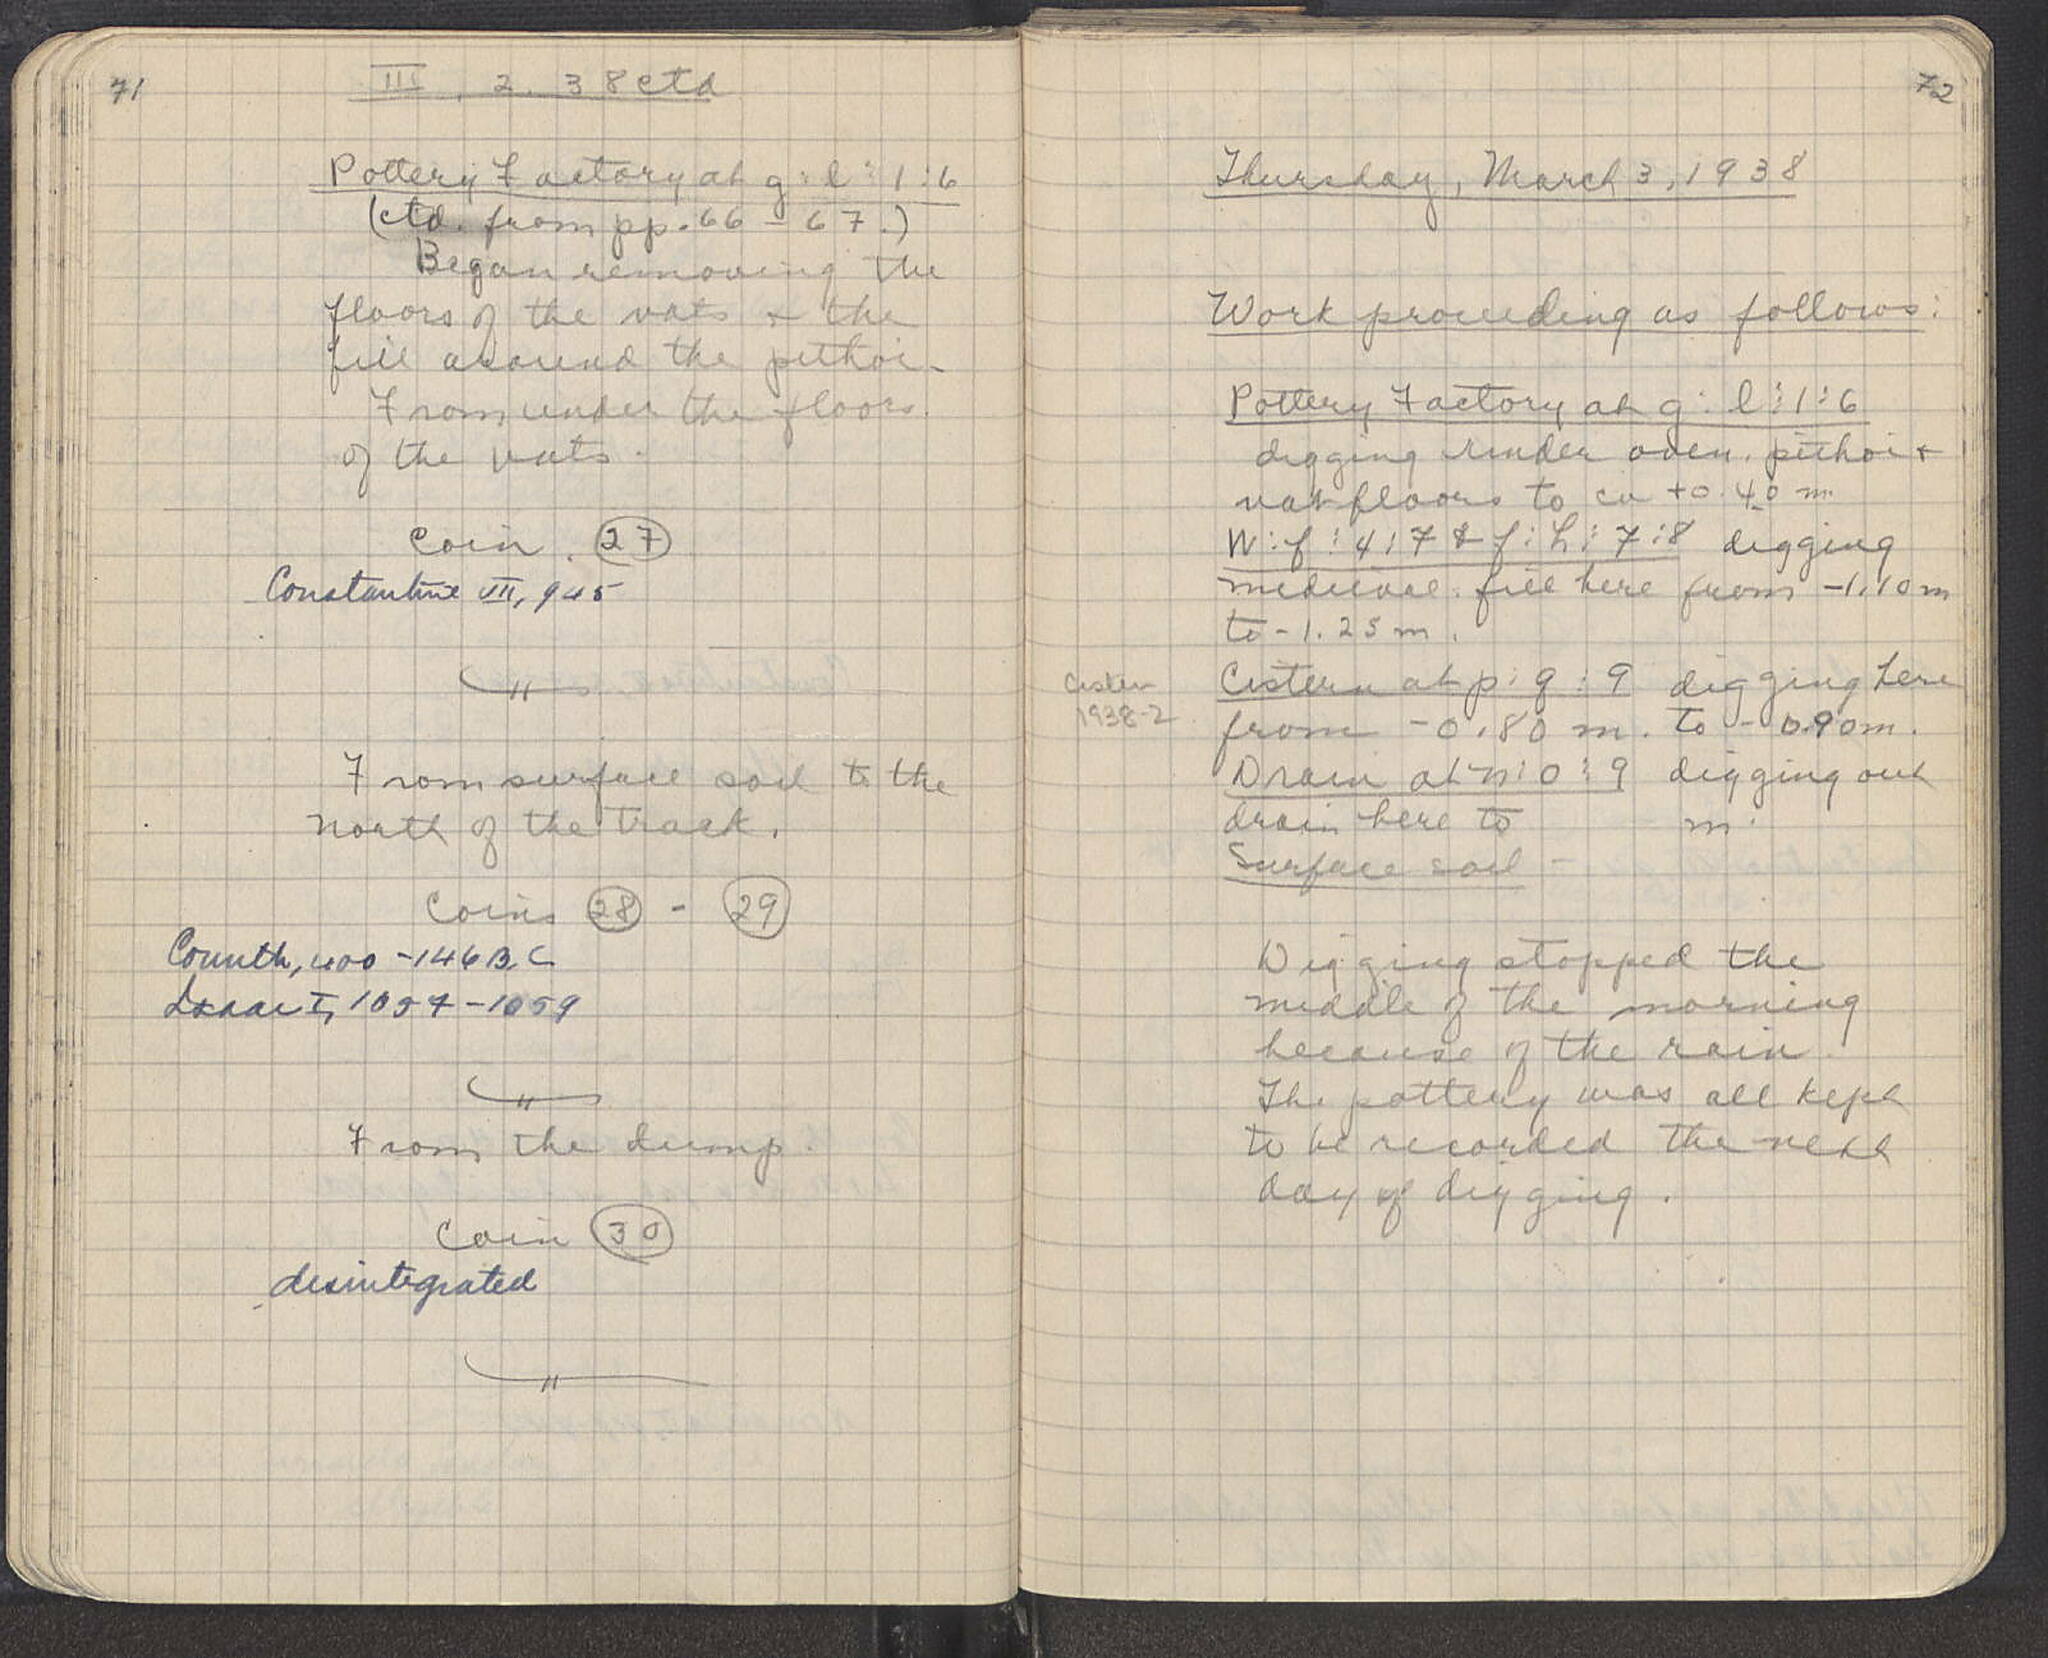 71
III. 2. 38 ctd
Pottery Factory at g:l:1:6
(ctd. from pp. 66 - 67.)
Began removing the
floors of the vats & the
fill around the pithoi.
From under the floors
of the vats.
Coin. 27
Constantine VII, 945
From surface soil to the
north of the track.
Coins 28 - 29
Corinth, 400 - 146 B.C
Isaac I, 1057 - 1059
From the dump.
Coin 30
disintegrated
72
Thursday, March 3, 1938
Work proceeding as follows:
Pottery Factory at g:l:1:6
digging under oven, pithoi &
vat floors to ca +0.40 m.
N:f:4:7 & f:h:7:8 digging
medieval fill here from -1.10 m
to -1.25 m.
Cistern
1938-2
Cistern at p:q:9 digging here
from -0.80 m. to -0.90 m.
Drain at n:o:9 digging out
drain here to m.
Surface soil -
Digging stopped the
middle of the morning
because of the rain.
The pottery was all kept
to be recorded the next
day of digging.